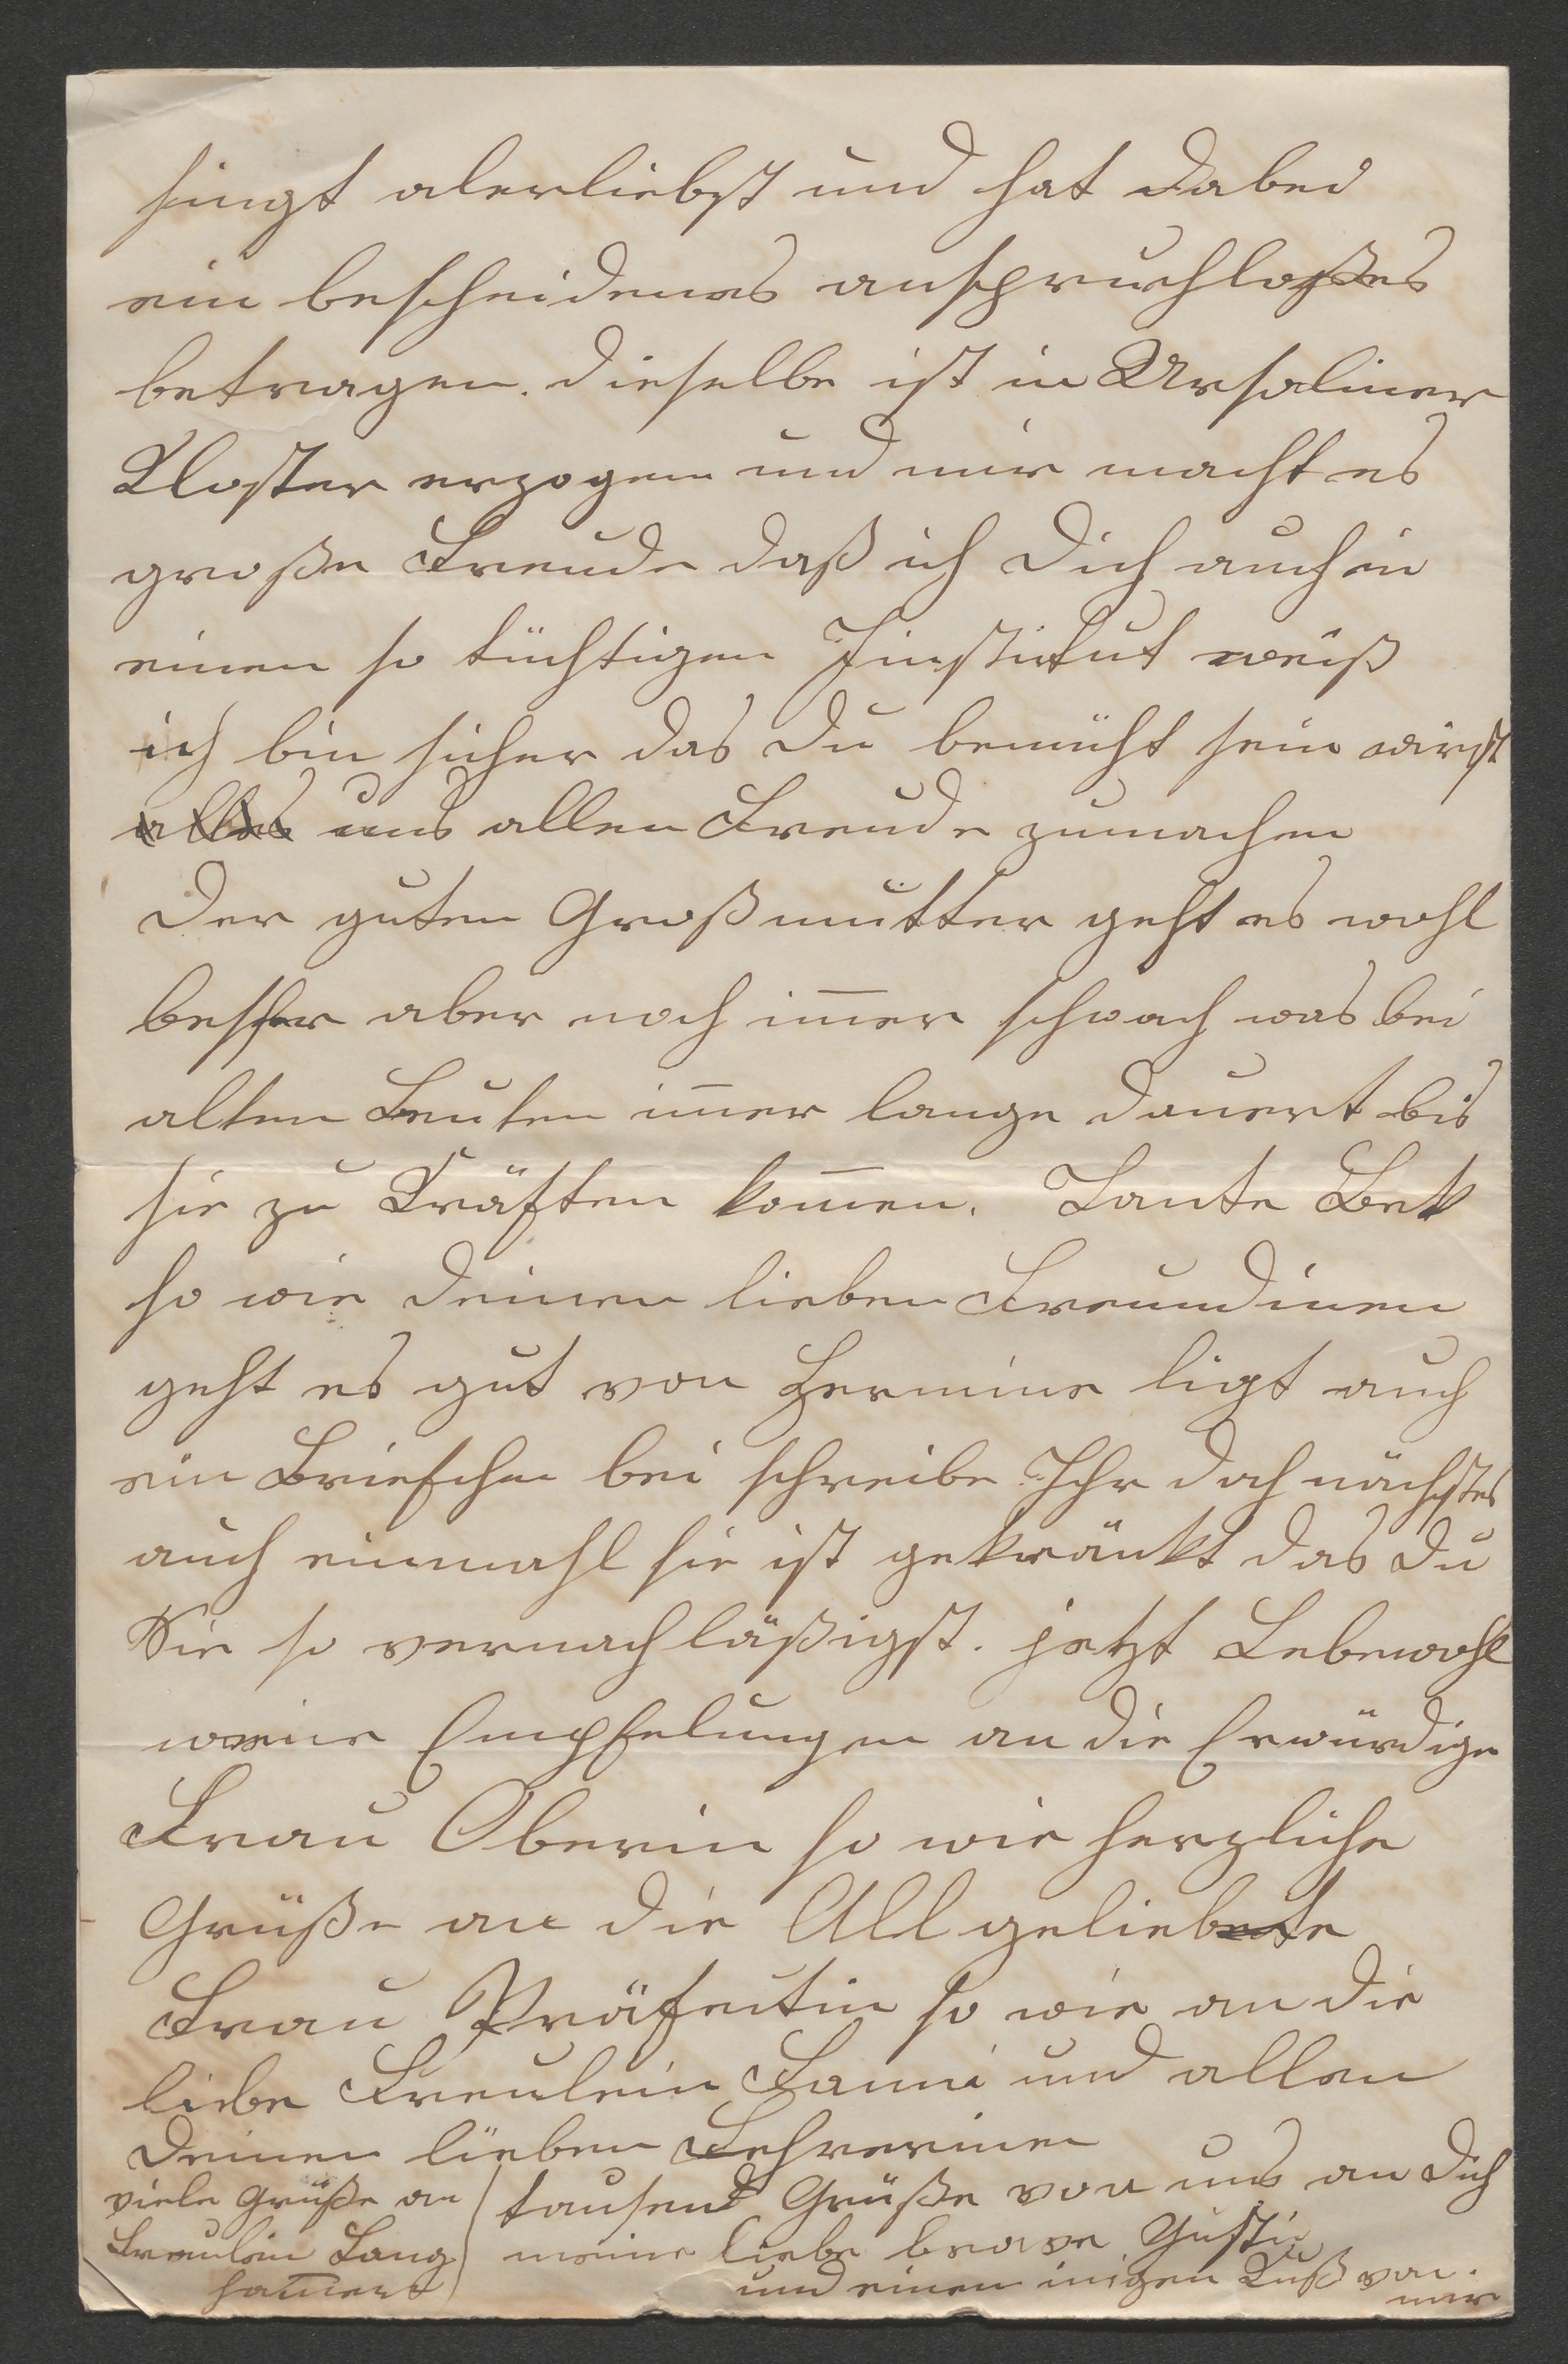 singt alerliebst und hat dabei
ein bescheidenes anspruchloßes
betragen. dieselbe ist in Ursoliner
Kloster erzogen und mir macht es
große Freude daß ich Dich auch in
einen so tüchtigen Institut weiß
ich bin sicher das Du bemüht sein wirst
alles uns allen Freude zumachen
Der guten Großmutter geht es wohl
besser aber noch im̅er schwach was bei
alten Leuten im̅er lange dauert bis
sie zu Kräften kom̅en. Tante Bek
so wie deinen lieben Freundinen
geht es gut von Hermine ligt auch
ein Briefchen bei schreibe Ihr doch nächstes
auch einmahl sie ist gekränkt das Du
Sie so vernachläßigst. jetzt Lebewohl
meine Empfelungen an die Erwürdige
Frau Oberin so wie herzliche
Grüße an die All geliebte
Frau Präfektin so wie an die
liebe Freulein Fanni und allen
Deinen lieben Lehrerinen
viele Grüße an
Freulein Lang
ham̅ert
tausend Grüße von uns an Dich
meine liebe brave Gusti
und einen inigen Kuß von
mir